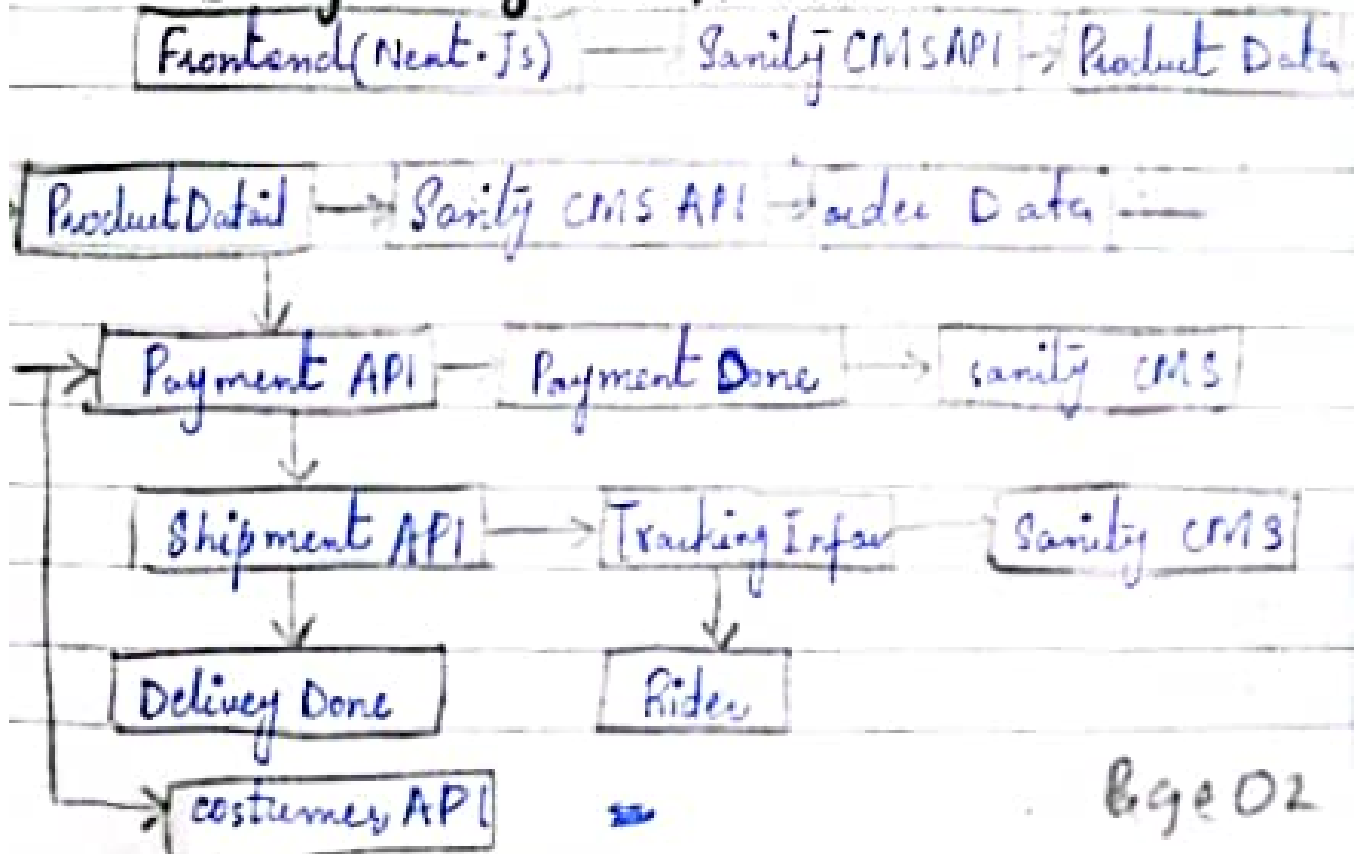 Frontend(Next.Js) Sanity CMS API Product Data
Product Datail Sanity CMS API order Data
Payment API Payment Done Sanity CMS
Shipment API Tracking Infor Sanity CMS
Delivey Done Rider
costumer API
Page 02